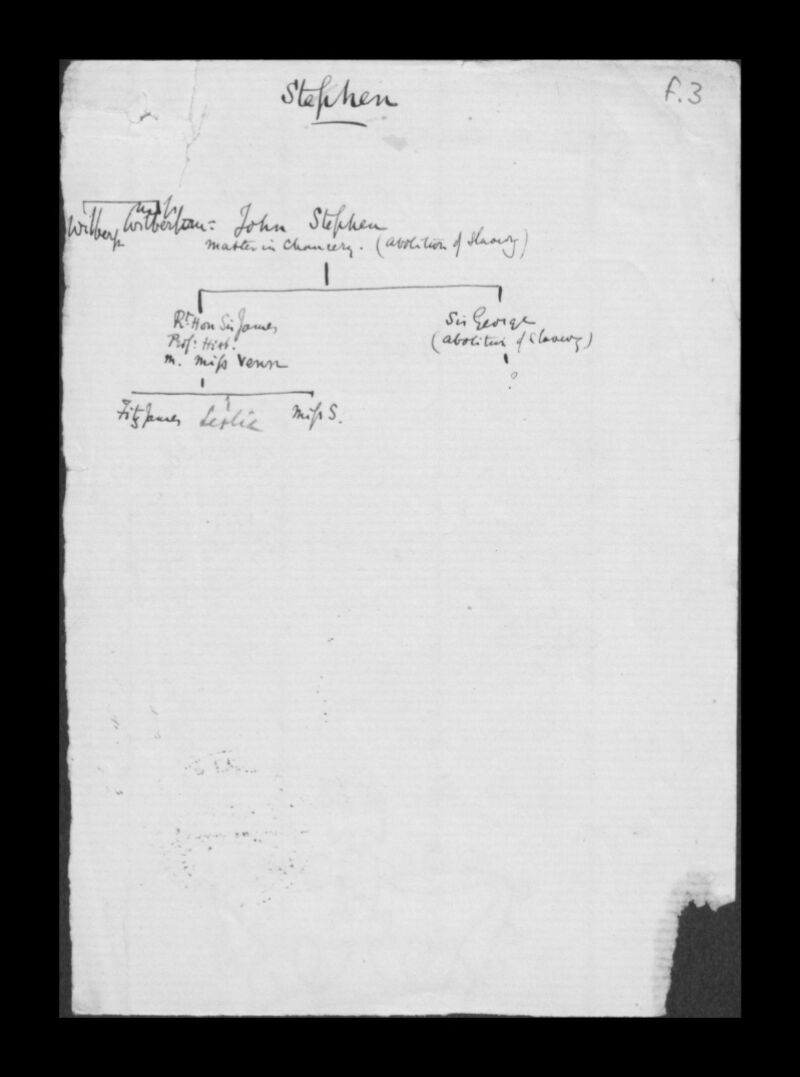 Stephen
f.3
Miss
Wilberf Wilberforce = John Stephen
Master in Chancery. (abolition of Slavery)
Rt Hon Sir James
Prof: Hist.
m. Miss Venn
Sir George
(abolition of slavery)
?
FitzJames Leslie Miss S.